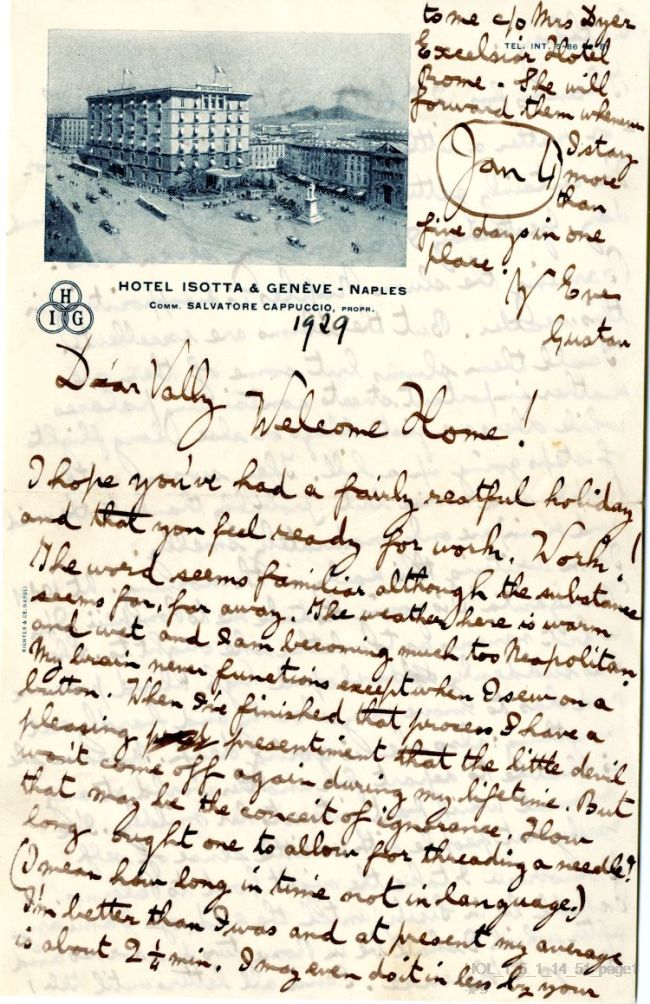 to me c/o Mrs Dyer
TEL. INT.
Excelsior Hotel
Rome. She will
forward them whenever
Jan 4
I stay
more
than
five days in one
place.
Gustav
HOTEL ISOTTA & GENÈVE - NAPLES
COMM. SALVATORE CAPPUCCIO, PROPR.
H
I G
1929
Dear Vally
Welcome Home!
I hope you've had a fairly restful holiday
and that you feel ready for work. Work!
The word seems familiar although the substance
seems far, far away. The weather here is warm
and wet and I am becoming much too Neapolitan.
My brain never functions except when I sew on a
button. When I've finished that process I have a
pleasing presentiment that the little devil
won't come off again during my lifetime. But
that may be the conceit of ignorance. How
long ought one to allow for threading a needle?
(I mean how long in time not in language.)
I'm better than I was and at present my average
is about 2 1/4 min. I may even do it in less by your
RICHTER & CO. NAPOLI